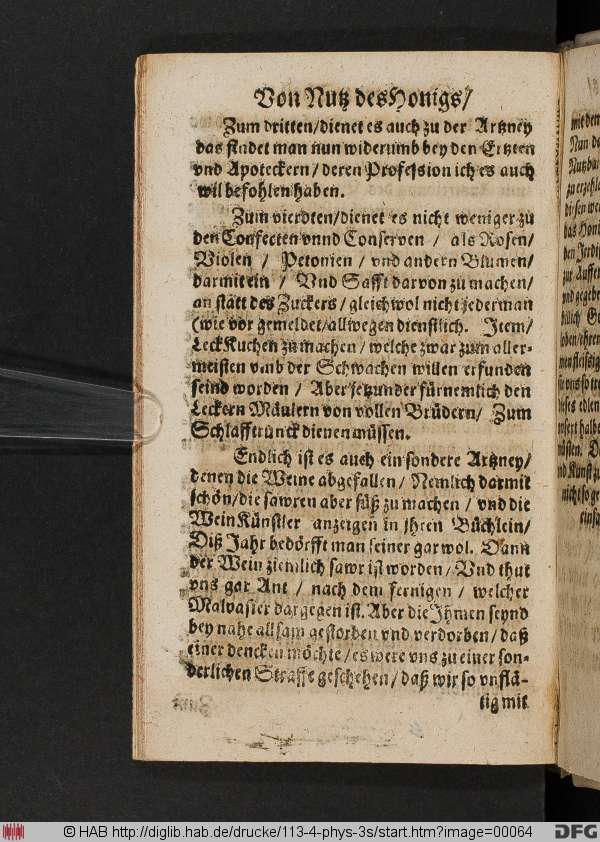 Von Nutz des Honigs/
Zum dritten/dienet es auch zu der Artzney
das findet man nun widerumb bey den Ertzten
vnd Apoteckern/ deren Profession ich es auch
wil befohlen haben.
Zum vierdten/dienet es nicht weniger zu
den Confecten vnnd Conserven / als Rosen/
Violen / Petonien / vnd andern Blumen/
darmit ein / Vnd Safft darvon zu machen/
an statt des Zuckers/ gleichwol nicht jederman
(wie vor gemeldet/allwegen dienstlich. Item/
LeckKuchen zu machen/ welche zwar zum aller-
meisten vmb der Schwachen willen erfunden
seind worden / Aber jetzunder fürnemlich den
Leckern Mäulern von vollen Brüdern/ Zum
Schlafftrunck dienen müssen.
Endlich ist es auch ein sondere Artzney/
denen die Weine abgefallen/ Nemlich darmit
schön/die sawren aber süß zu machen / vnd die
WeinKünstler anzeigen in jhren Büchlein/
Diß Jahr bedörfft man seiner gar wol. Dann
der Wein ziemlich sawr ist worden/ Vnd thut
vns gar Ant / nach dem fernigen / welcher
Malvasier dargegen ist. Aber die Jhmen seynd
bey nahe allsam gestorben vnd verdorben/ daß
einer dencken möchte/es were vns zu einer son-
derlichen Straffe geschehen/ daß wir so vnflä-
tig mit
mit den
Nun
das Honi
den
nicht so ge
© HAB http://diglib.hab.de/drucke/113-4-phys-3s/start.htm?image=00064
DFG